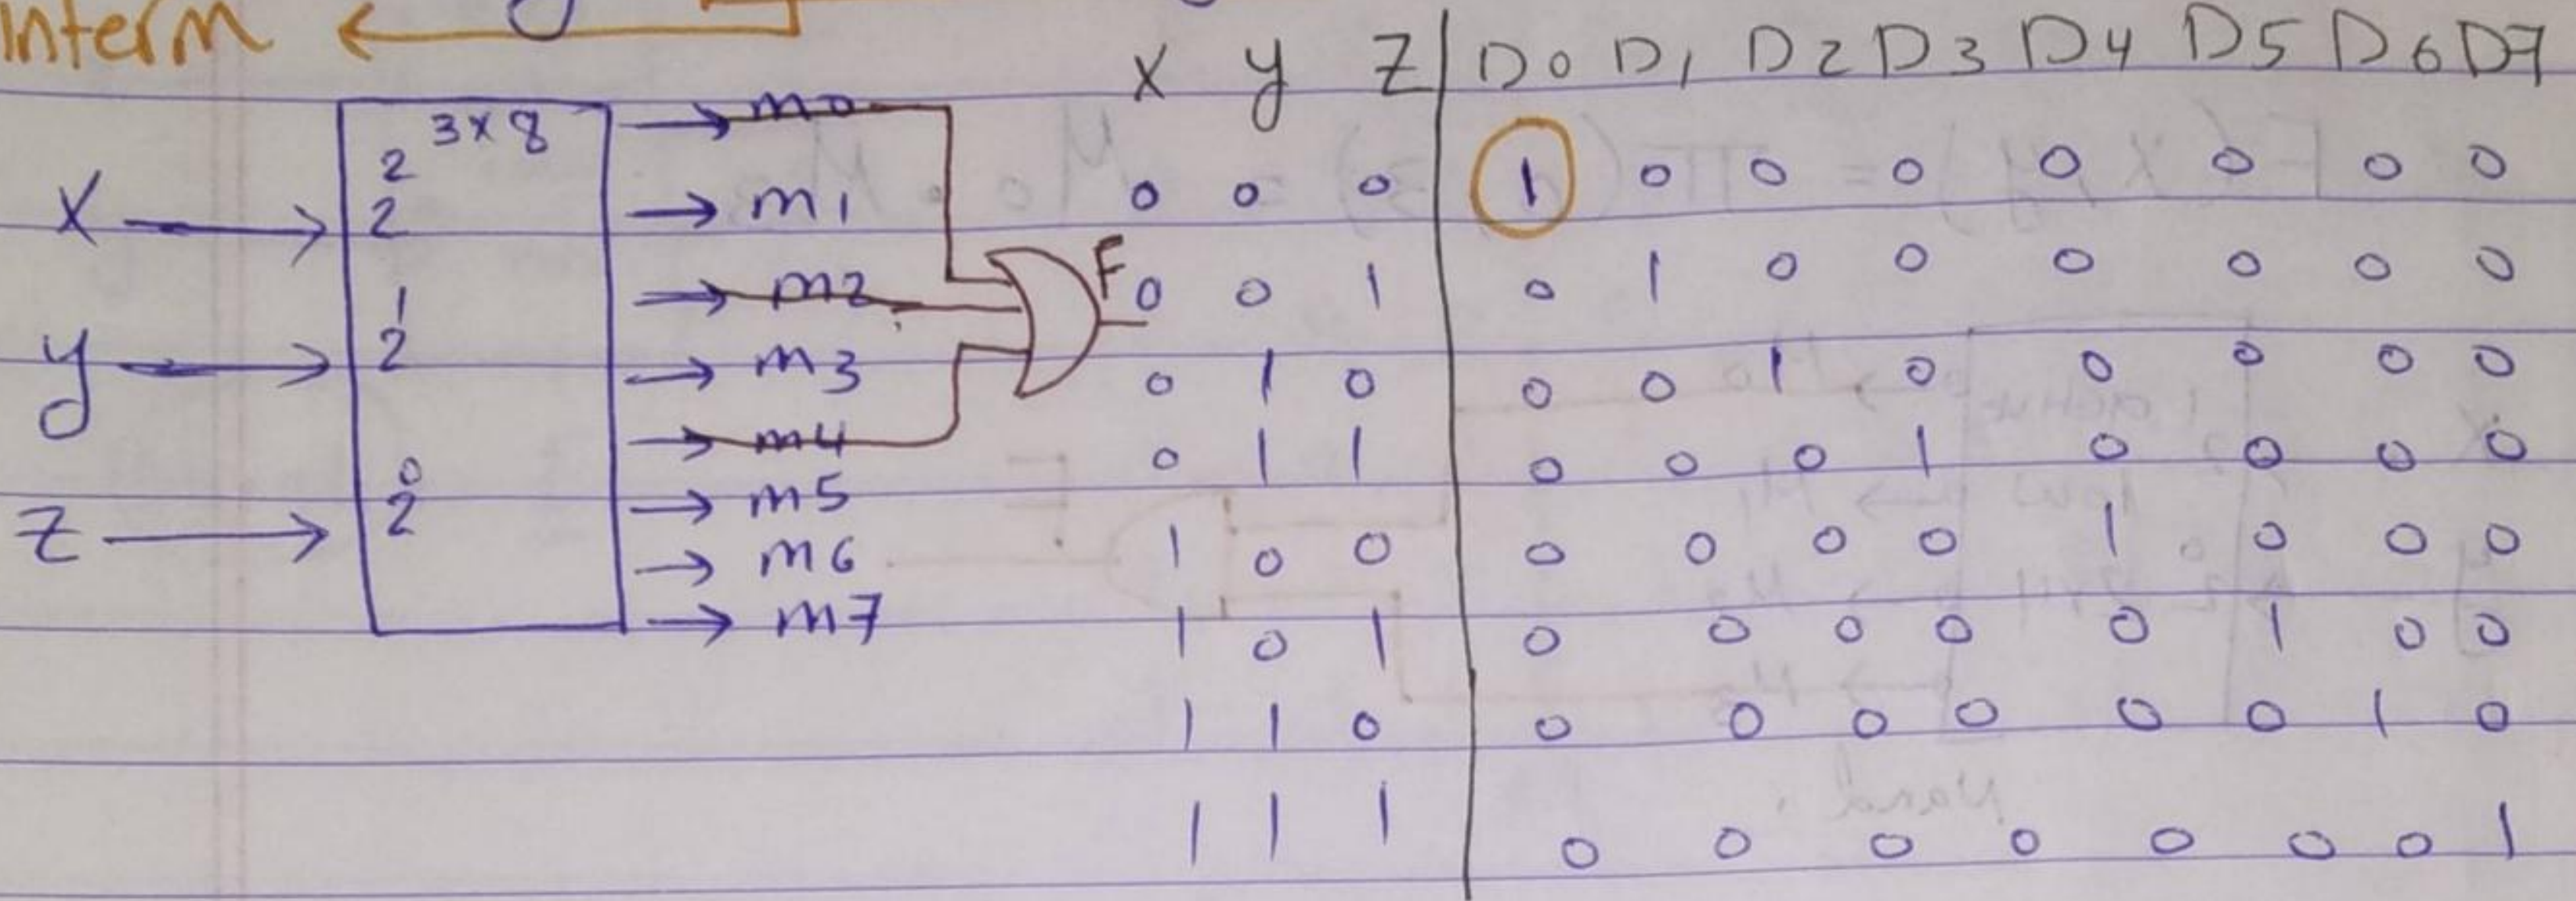 interm
3x8
x 2 2 → m0
→ m1
y 2 1 → m2
→ m3
→ m4
z 2 0 → m5
→ m6
→ m7
F
x y z | D0 D1 D2 D3 D4 D5 D6 D7
0 0 0 | 1 0 0 0 0 0 0 0
0 0 1 | 0 1 0 0 0 0 0 0
0 1 0 | 0 0 1 0 0 0 0 0
0 1 1 | 0 0 0 1 0 0 0 0
1 0 0 | 0 0 0 0 1 0 0 0
1 0 1 | 0 0 0 0 0 1 0 0
1 1 0 | 0 0 0 0 0 0 1 0
1 1 1 | 0 0 0 0 0 0 0 1